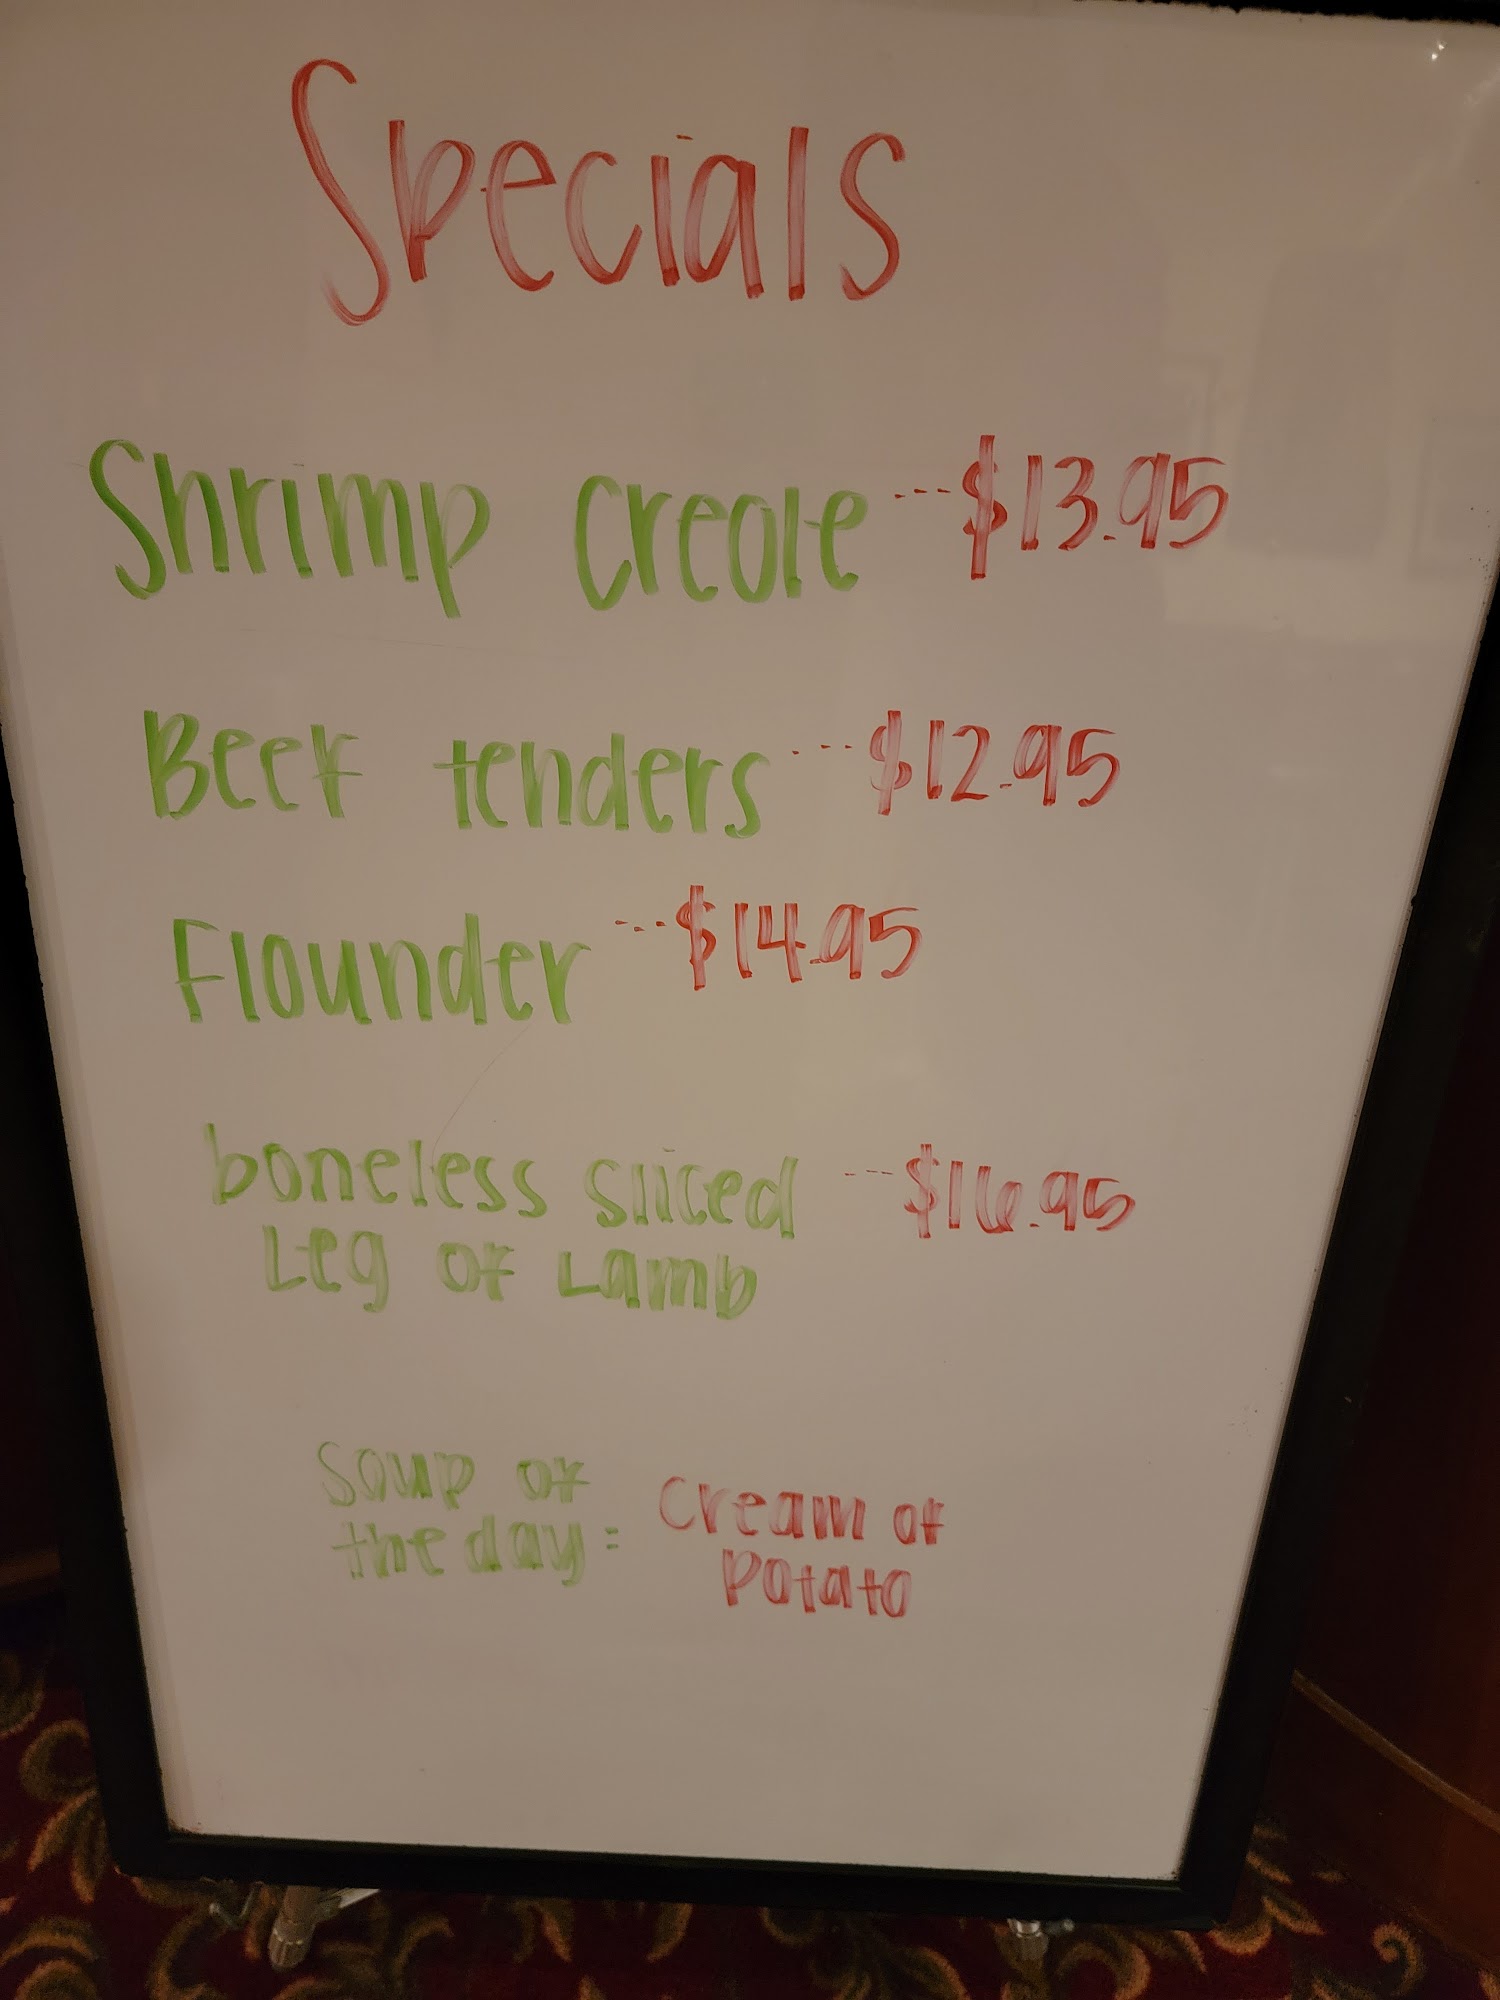 Specials
Shrimp Creole ---$13.95
Beef tenders ---$12.95
Flounder ---$14.95
boneless sliced ---$16.95
Leg of Lamb
Soup of
the day: Cream of
Potato